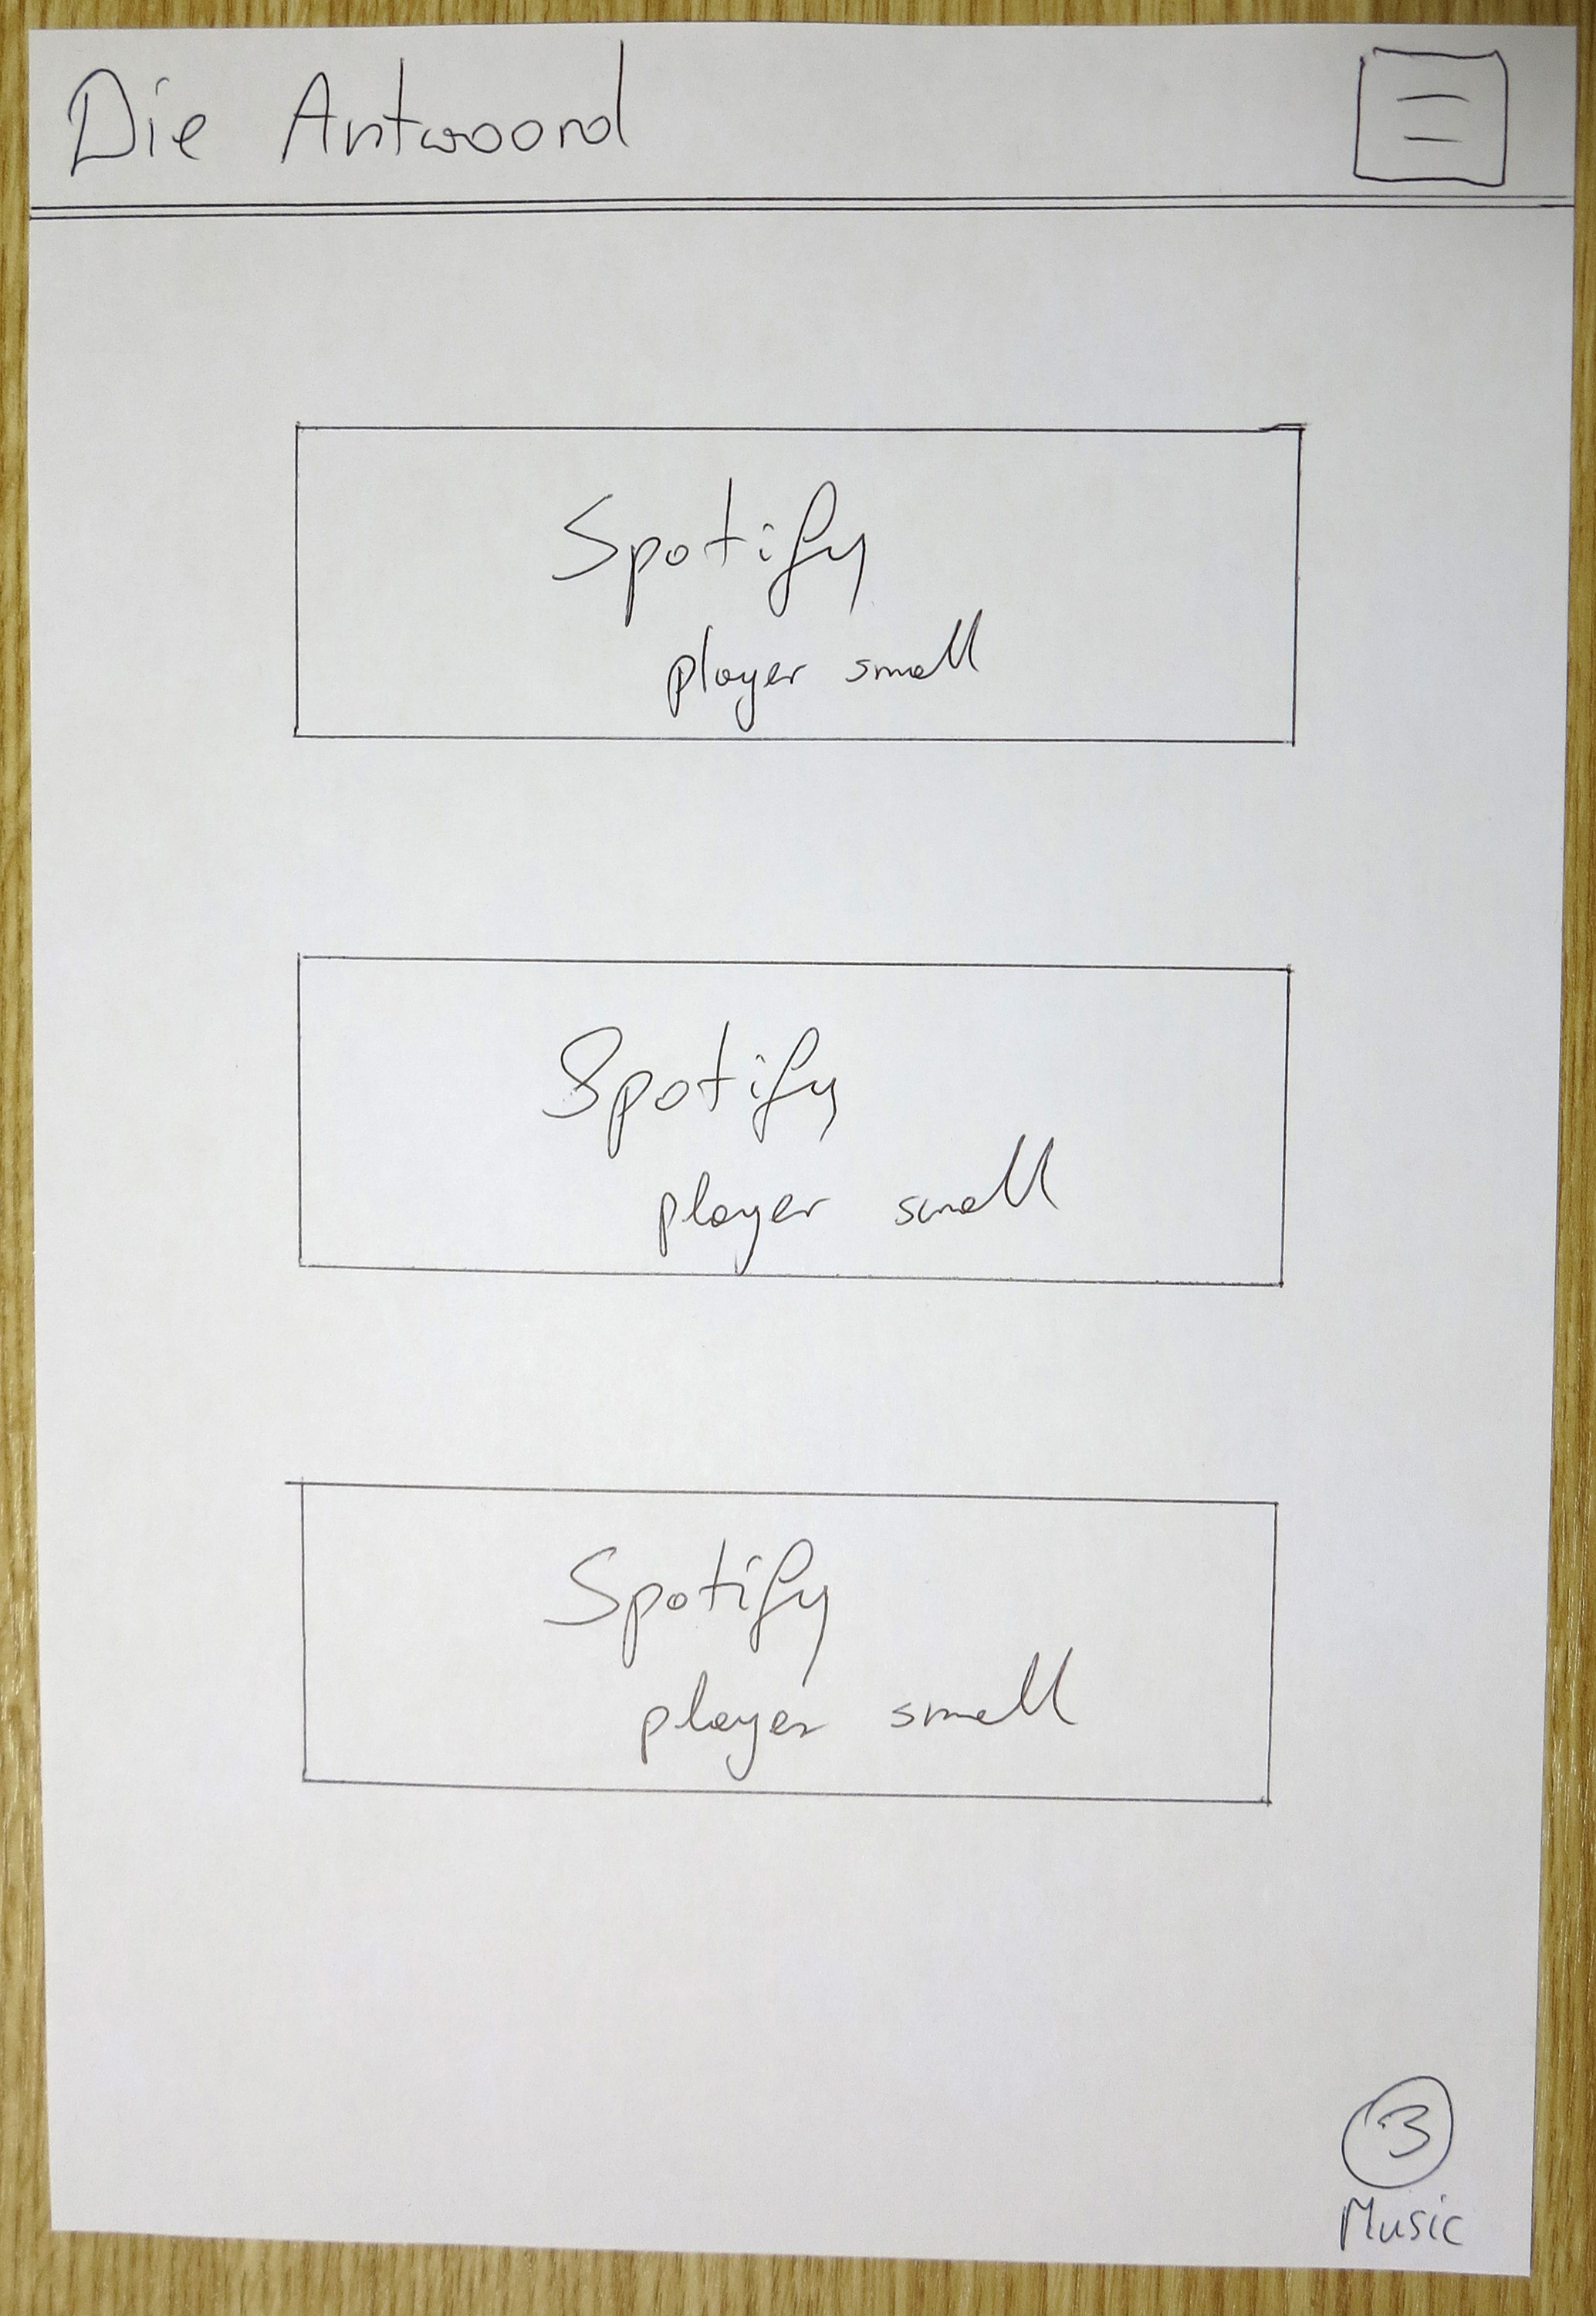 Die Antwoord
Spotify
player small
Spotify
player small
Spotify
player small
3
Music